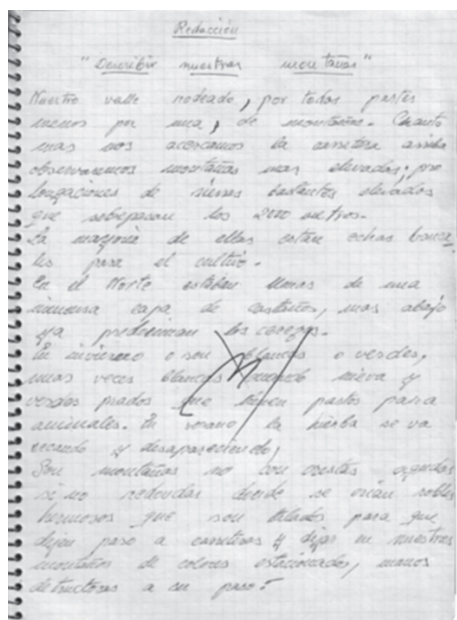 Redacción
"Describir nuestras montañas"
Nuestro valle rodeado, por todas partes
menos por una, de montañas. Cuanto
mas nos acercamos la carretera arriba
observaremos montañas mas elevadas; pro
longaciones de sierras bastantes elevadas
que sobrepasan los 2000 metros.
La mayoria de ellas estan echas banca
les para el cultivo.
En el Norte estaban llenas de una
inmensa capa de castaños, mas abajo
ya predominan los cerezos.
En invierno o son blancas o verdes,
unas veces blancas cuando nieva y
verdes prados que tienen pastos para
animales. En verano la hierba se va
secando y desapareciendo,
Son montañas no con crestas agudas
si no redondas donde se crian robles
hermosos que son talados para que
dejen paso a carreteras y dejar en nuestras
montañas de colores estacionados, manos
detructoras a su paso.